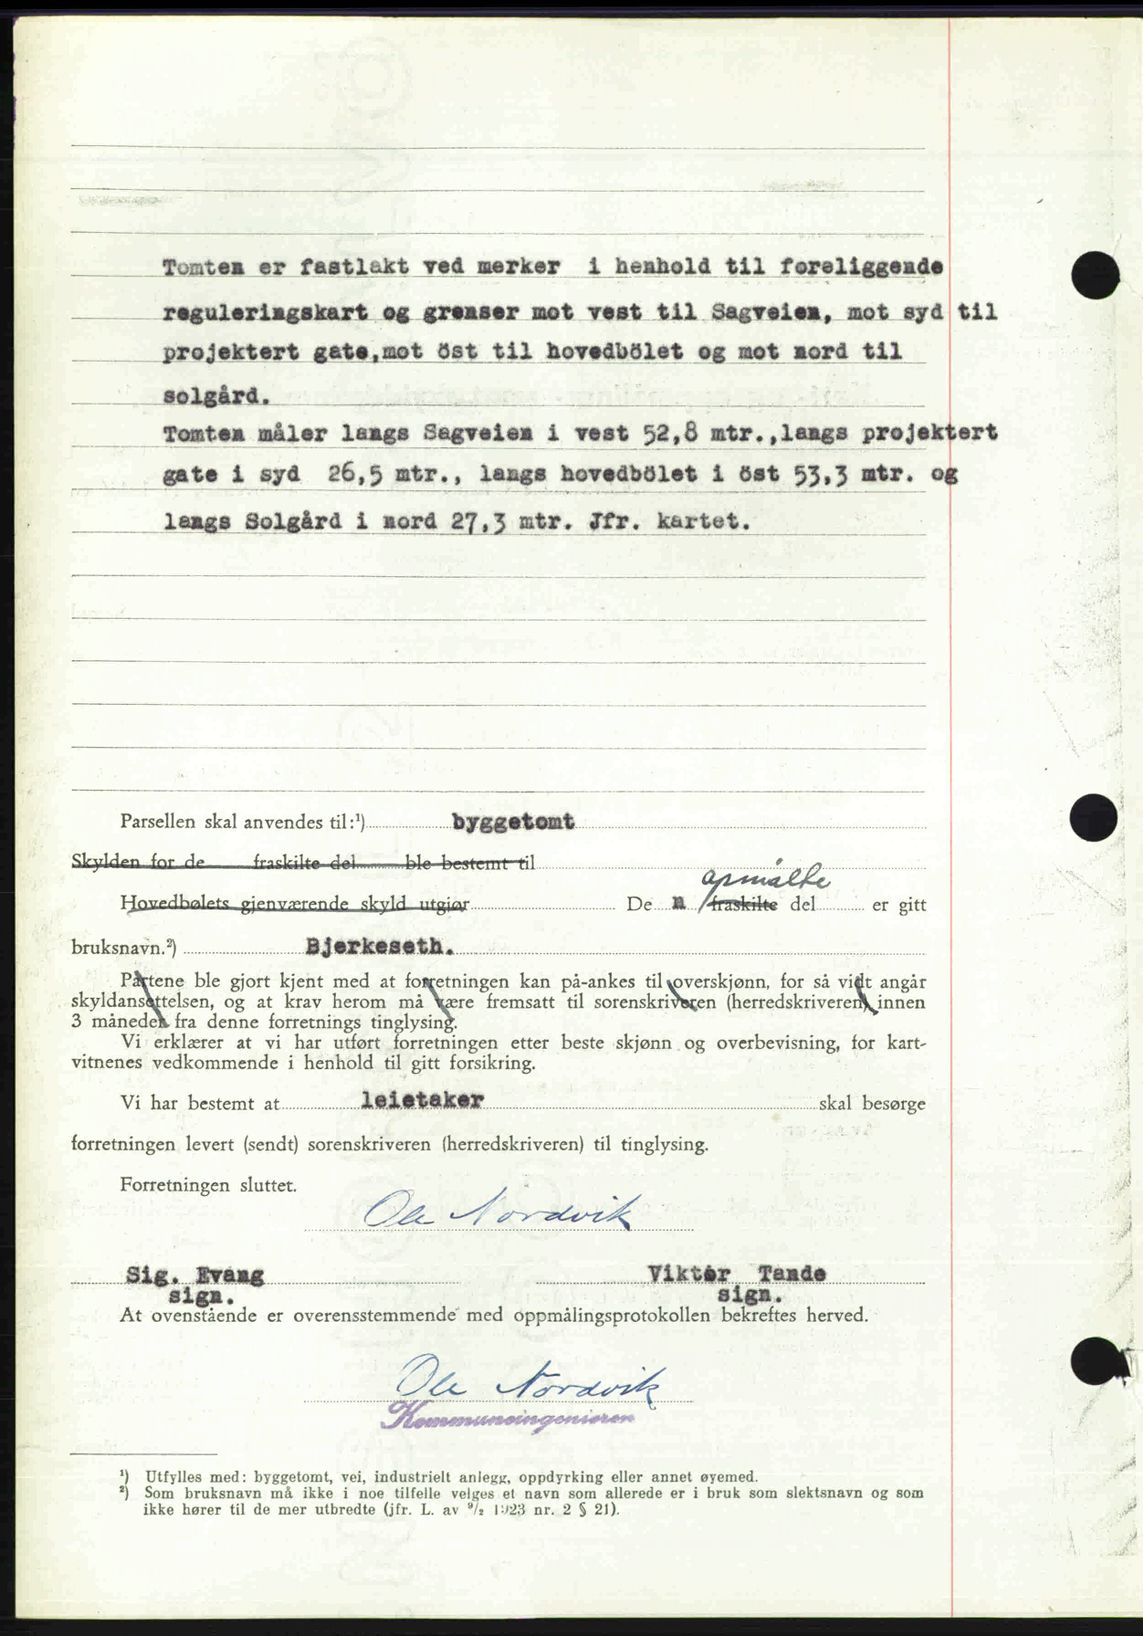 Tomten er fastlakt ved merker i henhold til foreliggende
reguleringskart og grenser mot vest til Sagveien, mot syd til
projektert gate,mot öst til hovedbölet og mot nord til
solgård.
Tomten måler langs Sagveien i vest 52,8 mtr.,langs projektert
gate i syd 26,5 mtr., langs hovedbölet i öst 53,3 mtr. og
langs Solgård i nord 27,3 mtr. Jfr. kartet.
Parsellen skal anvendes til:¹) byggetomt
Skylden for de fraskilte del ble bestemt til
opmålte
Hovedbølets gjenværende skyld utgjør De n fraskilte del er gitt
bruksnavn.²) Bjerkeseth.
Partene ble gjort kjent med at forretningen kan på-ankes til overskjønn, for så vidt angår
skyldansettelsen, og at krav herom må være fremsatt til sorenskriveren (herredskriveren) innen
3 måneder fra denne forretnings tinglysing.
Vi erklærer at vi har utført forretningen etter beste skjønn og overbevisning, for kart-
vitnenes vedkommende i henhold til gitt forsikring.
Vi har bestemt at leietaker skal besørge
forretningen levert (sendt) sorenskriveren (herredskriveren) til tinglysing.
Forretningen sluttet.
Ole Nordvik
Sig. Evang Viktor Tande
sign. sign.
At ovenstående er overensstemmende med oppmålingsprotokollen bekreftes herved.
Ole Nordvik
Kommuneingeniøren
¹) Utfylles med: byggetomt, vei, industrielt anlegg, oppdyrking eller annet øyemed.
²) Som bruksnavn må ikke i noe tilfelle velges et navn som allerede er i bruk som slektsnavn og som
ikke hører til de mer utbredte (jfr. L. av ⁹/₂ 1923 nr. 2 § 21).